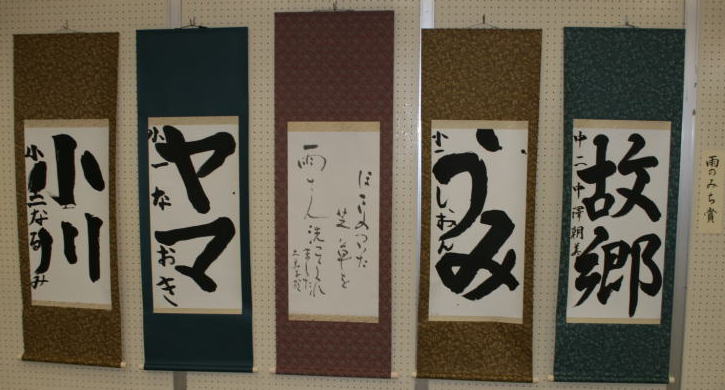 雨のみち賞
故郷
中二 中澤朝美
うみ
小一 しおん
ほこりのついた
芝草を
雨さん洗つてくれ
ました
ヤマ
小一 なおき
小川
小二 なるみ